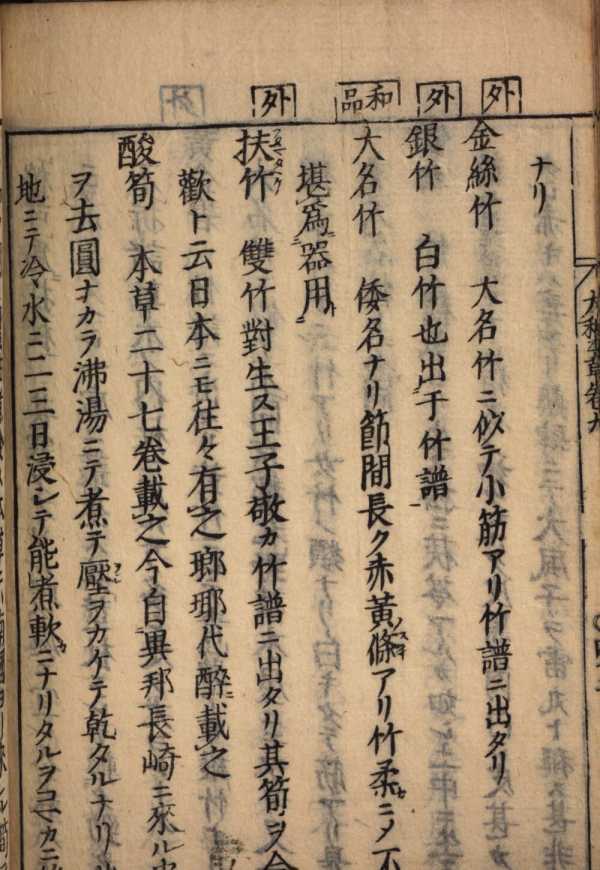 外
外
和品
外
ナリ
金絲竹 大名竹ニ似テ小筋アリ竹譜ニ出タリ
銀竹 白竹也出于竹譜
大名竹 倭名ナリ節間長ク赤黄條アリ竹柔ニメ不
堪為器用
扶竹 雙竹對生ス王子敬カ竹譜ニ出タリ其筍ヲ合
歡ト云日本ニモ往々有之瑯琊代醉載之
酸筍 本草二十七卷載之今自異邦長崎ニ來ル
ヲ去圓ナカラ沸湯ニテ煮テ壓ヲカケテ乾タルナリ
地ニテ冷水ニ二三日浸シテ能煮軟ニナリタルヲコマカニ